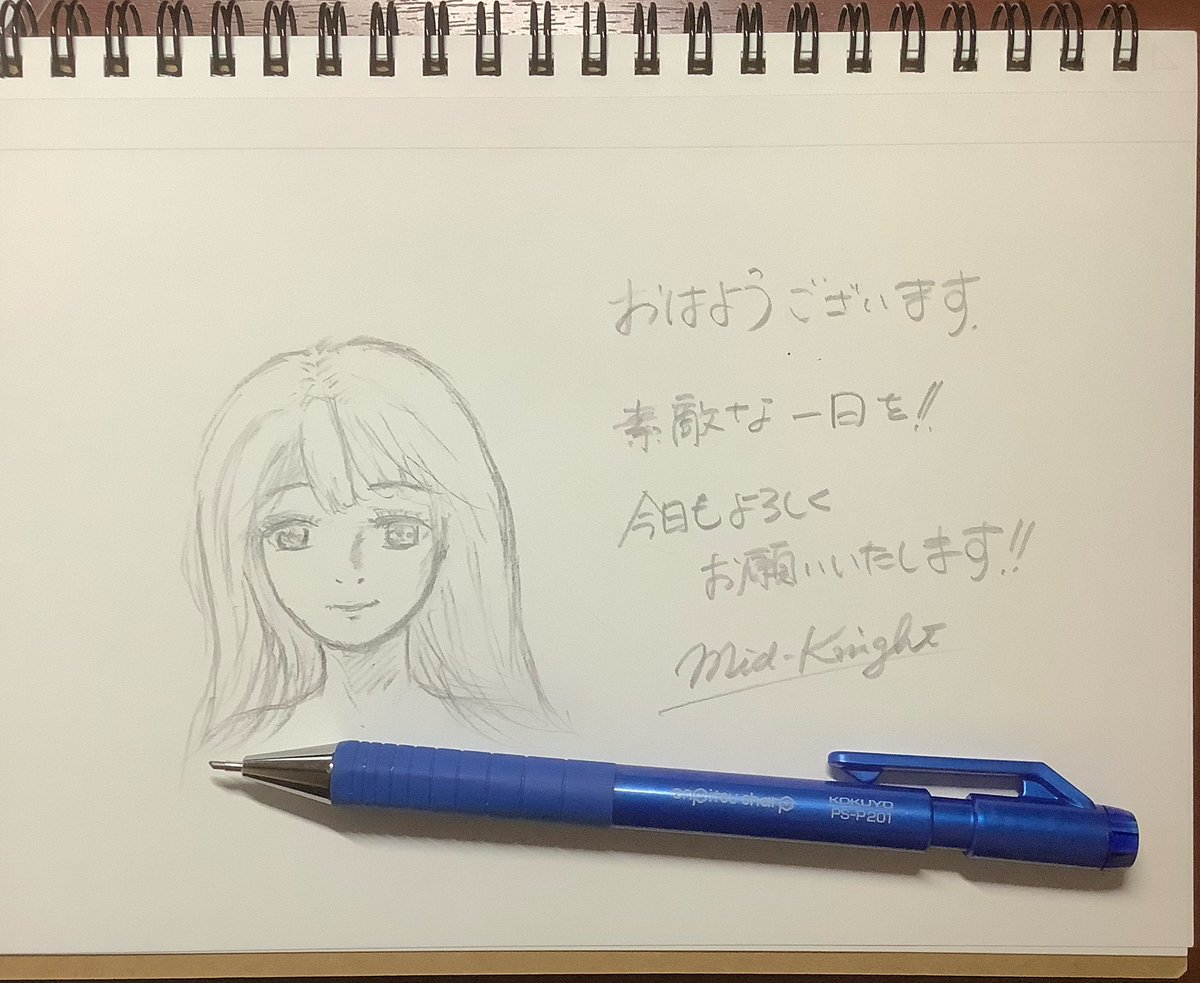 おはようございます.
素敵な一日を!!
今日もよろしく
お願いいたします!!
Mid-Knight
enpitsu sharp
KOKUYO
PS-P201